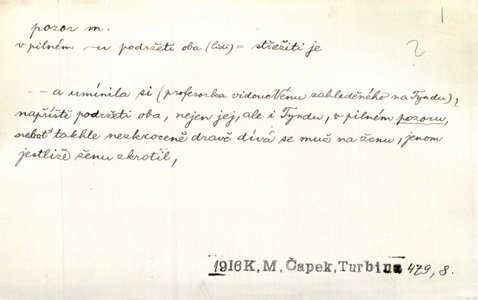 pozor m.
v pilném –u podržeti oba (lidi) = střežiti je ?
-- a umínila si (profesorka vidouc Vénu zahleděného na Tyndu),
napříště podržeti oba, nejen jej, ale i Tyndu, v pilném pozoru,
neboť takhle nezkroceně dravě dívá se muž na ženu, jenom
jestliže ženu zkrotil,
1916 K, M. Čapek, Turbina 479, 8.